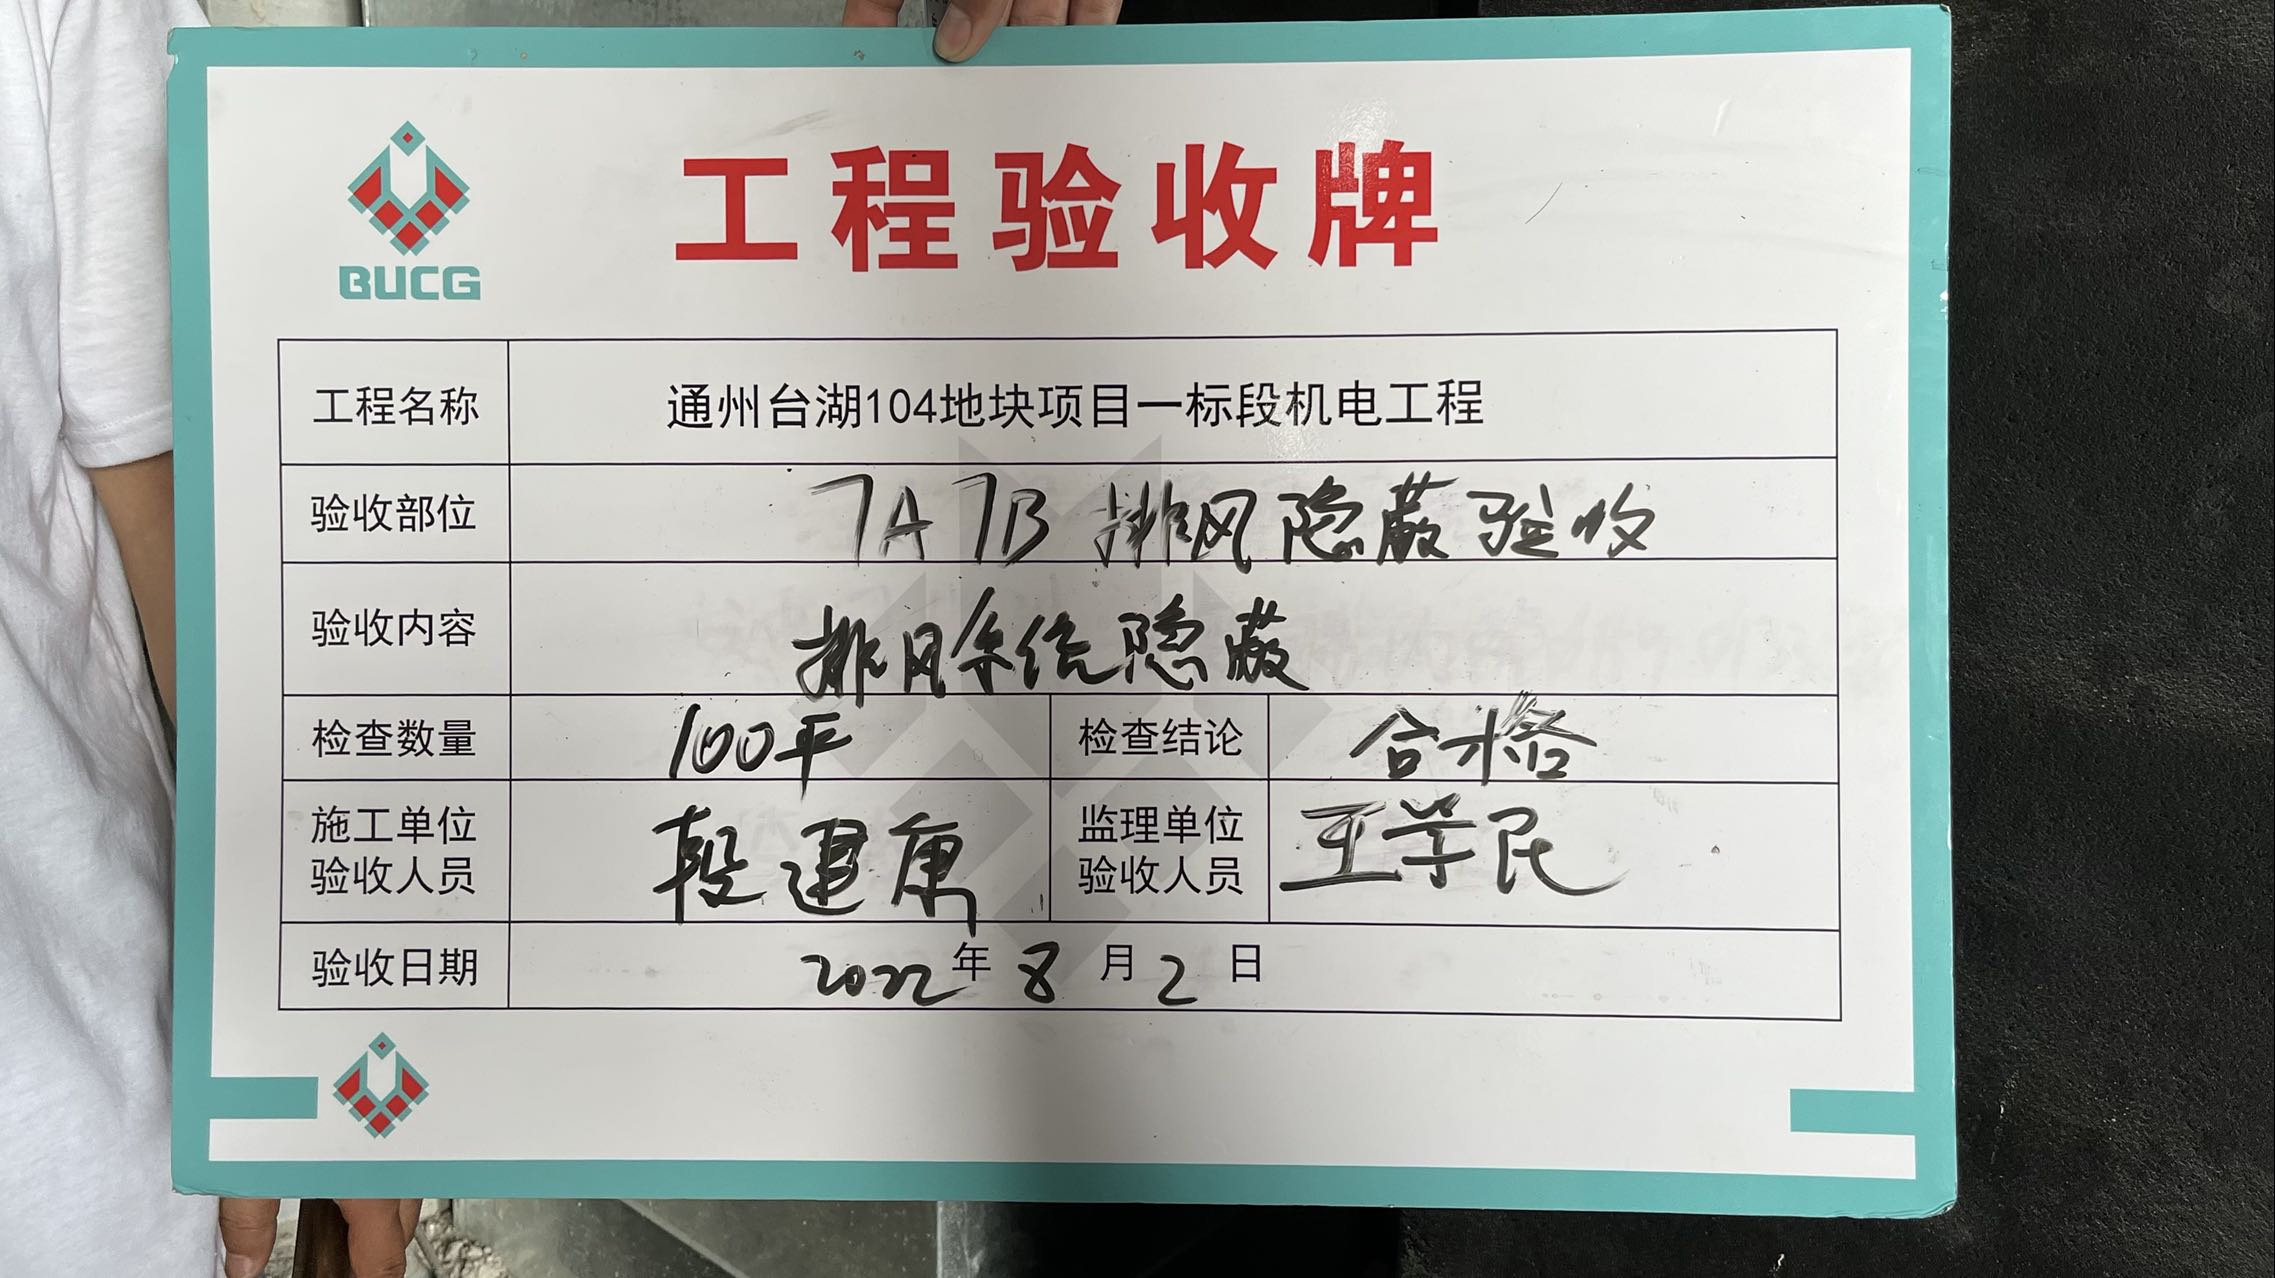 BUCG
工程验收牌
工程名称 通州台湖104地块项目一标段机电工程
验收部位 7A 7B 排风隐蔽验收
验收内容 排风系统隐蔽
检查数量 100平 检查结论 合格
施工单位验收人员 段建康 监理单位验收人员 王学民
验收日期 2022年8月2日